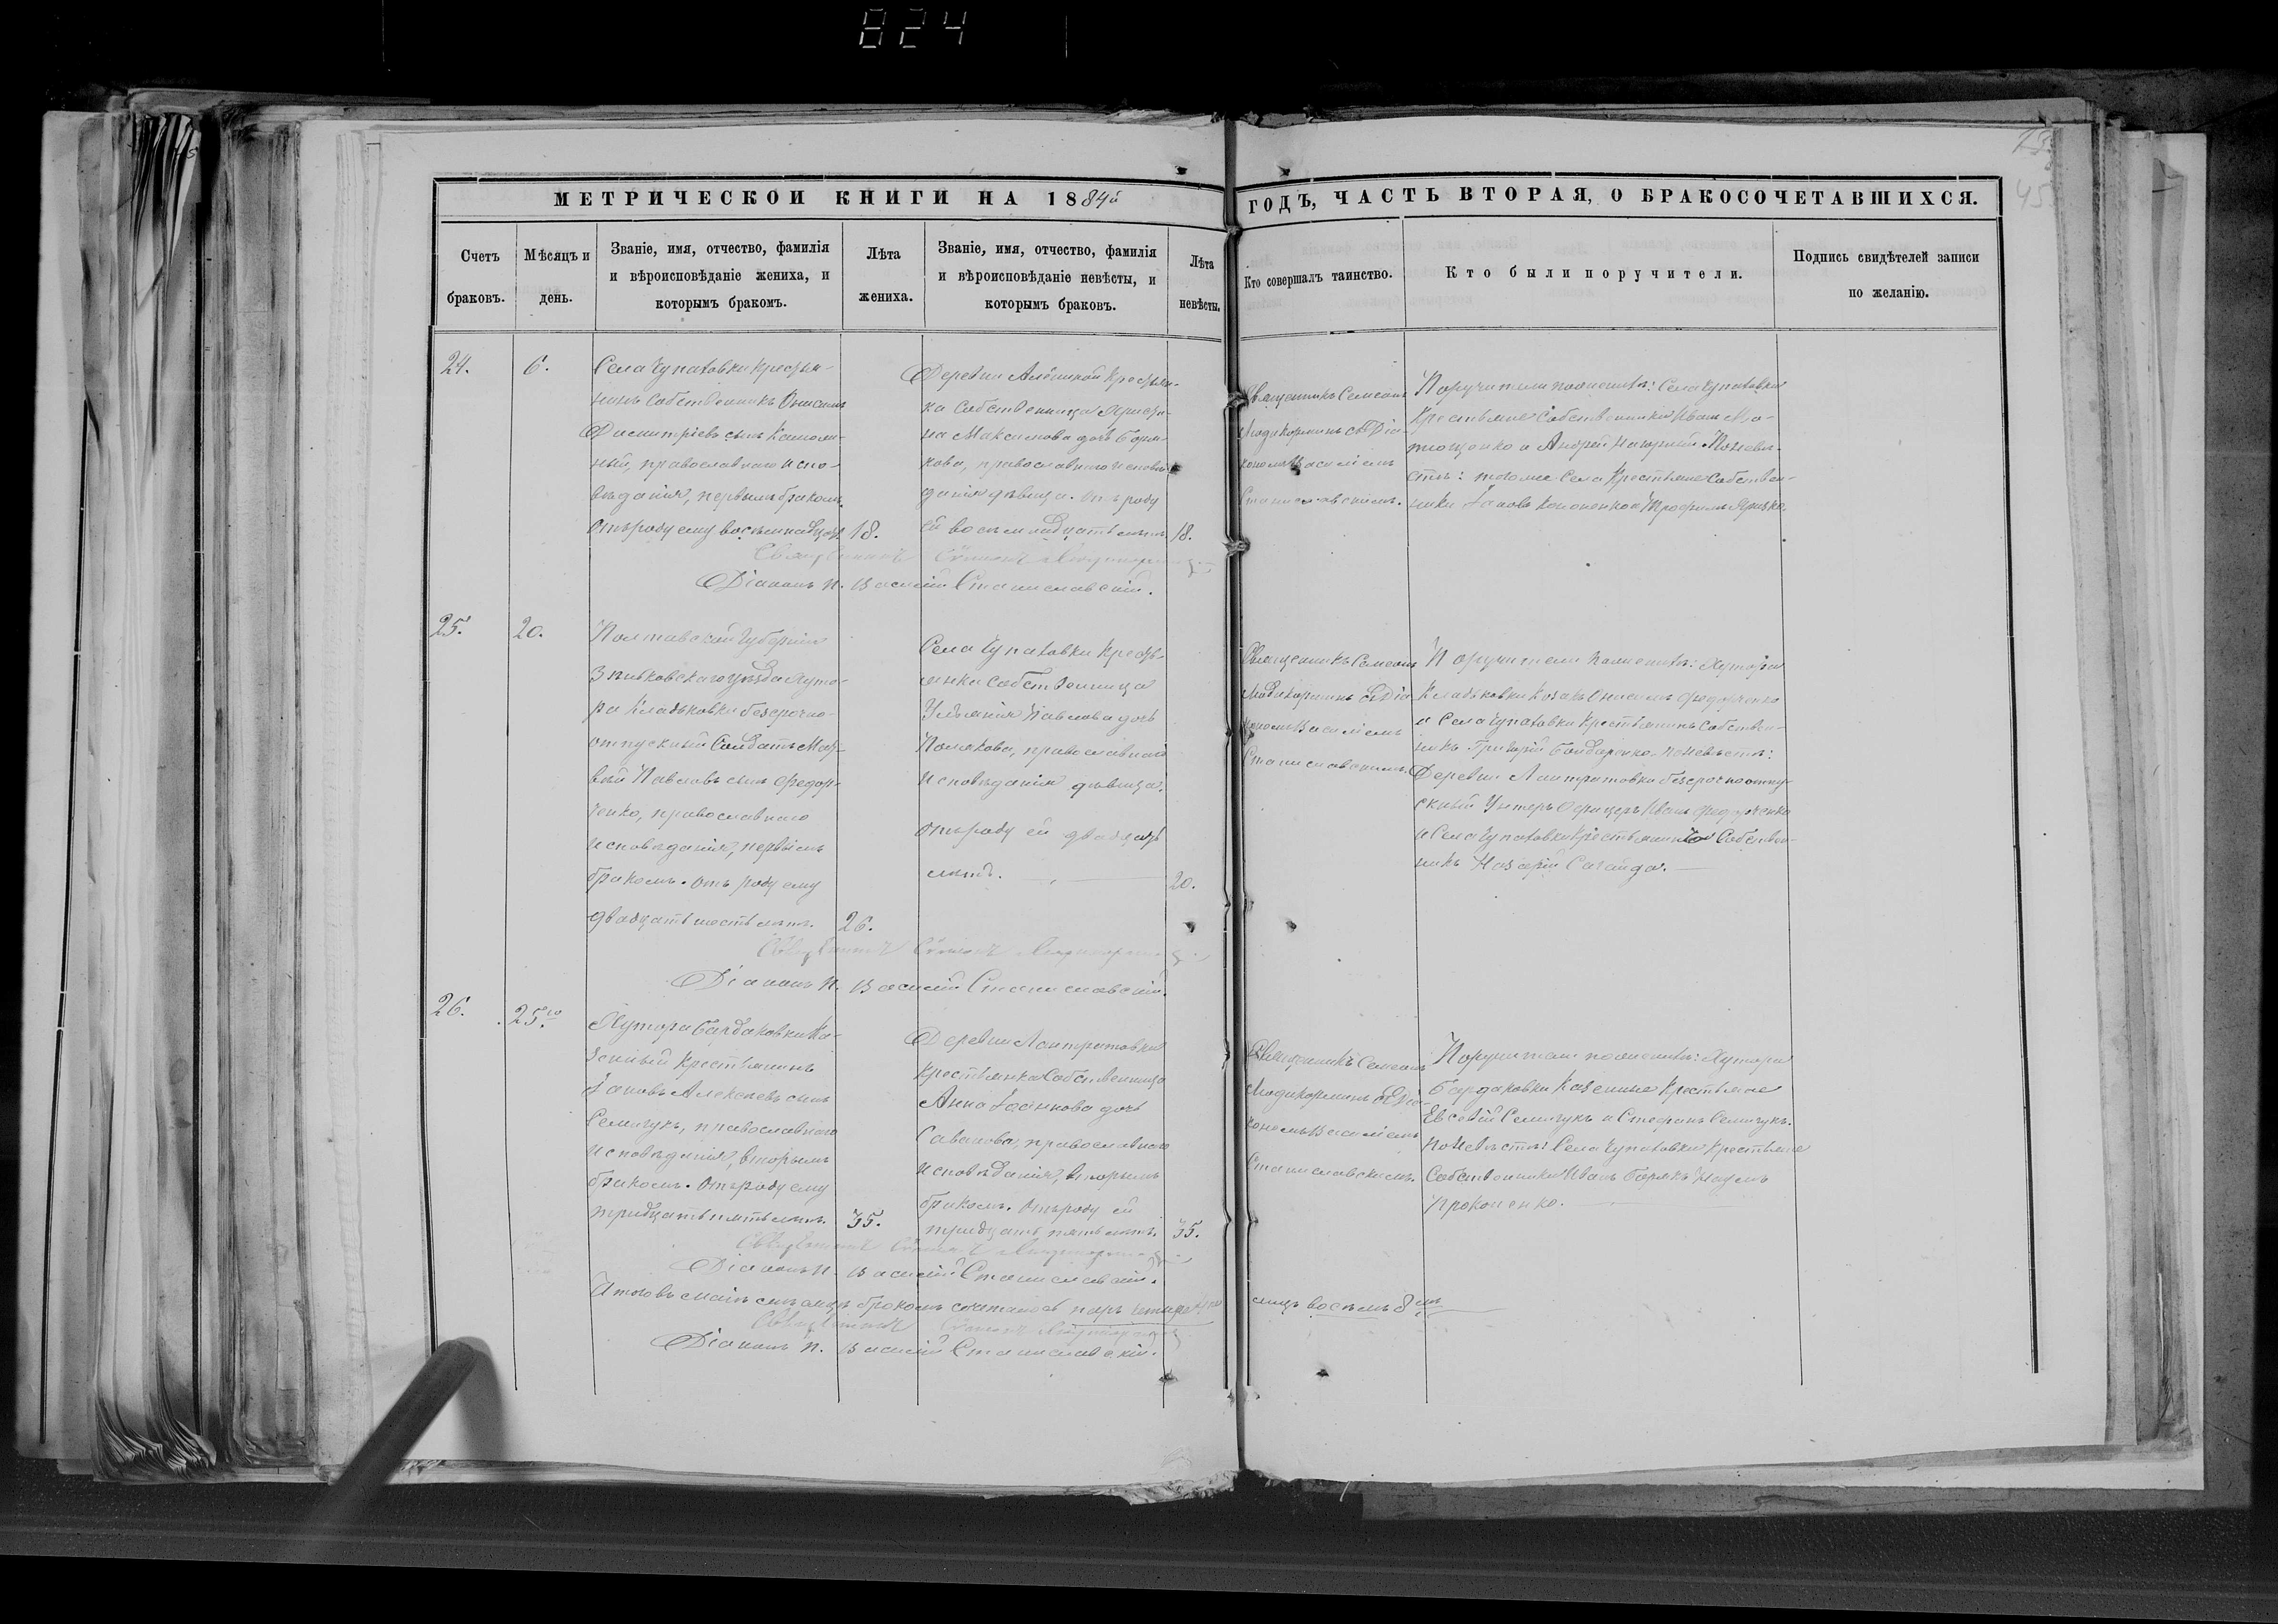 824
73
45
МЕТРИЧЕСКОЙ КНИГИ НА 1884й
ГОДЪ, ЧАСТЬ ВТОРАЯ, О БРАКОСОЧЕТАВШИХСЯ.
Счетъ браковъ.
Мѣсяцъ и день.
Званіе, имя, отчество, фамилія
и вѣроисповѣданіе жениха, и
которымъ бракомъ.
Лѣта
жениха.
Званіе, имя, отчество, фамилія
и вѣроисповѣданіе невѣсты, и
которымъ браковъ.
Лѣта
невѣсты.
Кто совершалъ таинство.
Кто были поручители.
Подпись свидѣтелей записи
по желанію.
24.
6.
Села Чупаховки Крестья-
нинъ Собственникъ Онисимъ
Димитріевъ сынъ
ный, православнаго испо-
вѣданія, первымъ бракомъ.
Отъ роду ему восемнадцать
18.
Деревни Крестьян-
ка Собственница Христи-
на Максимова дочь
кова, православнаго исповѣ-
данія дѣвица. Отъ роду
ей восемнадцать лѣтъ.
18.
Священникъ Симеонъ
Діакономъ Василіемъ
Станиславскимъ.
Поручители по женихѣ: Села Чупаховки
Крестьяне Собственники Иванъ Ма-
тющенко и Андрей Нагорный. По невѣ-
стѣ: того же Села Крестьяне Собствен-
ники Іаковъ Кононенко и Трофимъ
Священникъ Симеонъ
Діаконъ н. Василій Станиславскій.
25.
20.
Полтавской Губерніи
Зѣньковскаго уѣзда Хуто-
ра Кладьковки безсрочно-
отпускный Солдатъ Мат-
вѣй Павловъ сынъ Федор-
ченко, православнаго
исповѣданія, первымъ
бракомъ. Отъ роду ему
двадцать шесть лѣтъ.
26.
Села Чупаховки Кресть-
янка Собственница
Ульянія Павлова дочь
Полякова, православнаго
исповѣданія дѣвица.
Отъ роду ей двадцать
лѣтъ.
20.
Священникъ Симеонъ
Діакономъ Василіемъ
Станиславскимъ.
Поручители по женихѣ: Хутора
Кладьковки Козакъ Онисимъ Федорченко
и Села Чупаховки Крестьянинъ Собствен-
никъ Григорій Бондаренко. По невѣстѣ:
Деревни Лантратовки безсрочноотпу-
скный Унтеръ Офицеръ Иванъ Федорченко
и Села Чупаховки Крестьянинъ Собствен-
никъ Назарій Сагайда.
Священникъ Симеонъ
Діаконъ н. Василій Станиславскій.
26.
25го
Хутора Бардаковки Ка-
зенный Крестьянинъ
Іаковъ Алексѣевъ сынъ
Семичукъ, православнаго
исповѣданія, вторымъ
бракомъ. Отъ роду ему
тридцать пять лѣтъ.
35.
Деревни Лантратовки
Крестьянка Собственница
Анна дочь
православнаго
исповѣданія, вторымъ
бракомъ. Отъ роду ей
тридцать пять лѣтъ.
35.
Священникъ Симеонъ
Діакономъ Василіемъ
Станиславскимъ.
Поручители по женихѣ: Хутора
Бардаковки Казенные Крестьяне
Евсевій Семичукъ и Стефанъ Семичукъ.
По невѣстѣ: Села Чупаховки Крестьяне
Собственники Иванъ и Наумъ
Прокопенко.
Священникъ Симеонъ
Діаконъ н. Василій Станиславскій.
Итого въ маѣ мѣсяцѣ бракомъ сочеталось паръ четыре
лицъ восемь 8мь
Священникъ Симеонъ
Діаконъ н. Василій Станиславскій.